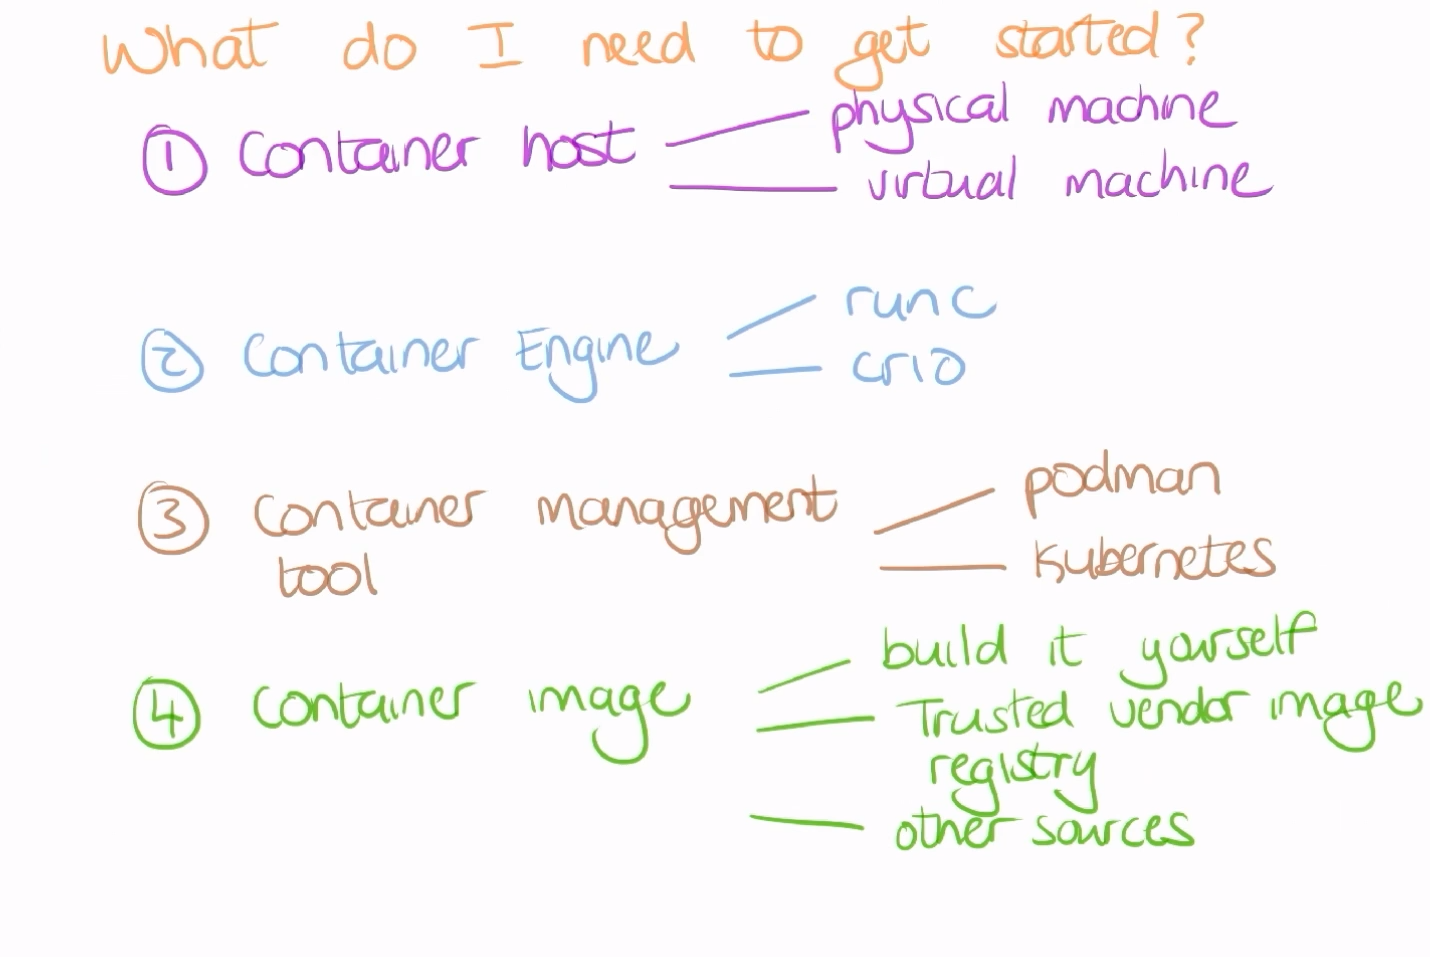 What do I need to get started?
1 Container host
physical machine
virtual machine
2 Container Engine
runc
crio
3 Container management
tool
podman
Kubernetes
4 Container image
build it yourself
Trusted vendor image
registry
other sources